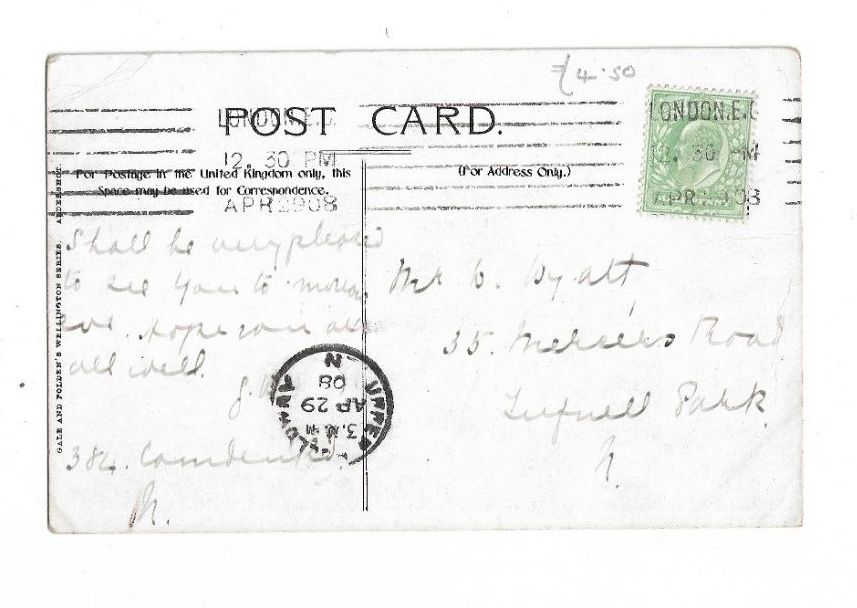 £4.50
POST CARD.
LONDON.E.C
12. 30 PM
APR 29 08
LONDON.E.C
12. 30 PM
APR 29 08
For Postage in the United Kingdom only, this
Space may be used for Correspondence.
(For Address Only.)
GALE AND POLDEN'S WELLINGTON SERIES. ALDERSHOT.
Shall be very pleased
to see you to morrow
eve. Hope you are
all well.
384. Camden Rd.
N.
Mr C. Wyatt
35. Merciers Road
Tufnell Park.
N.
UPPER HOLLOWAY
AP 29
08
N